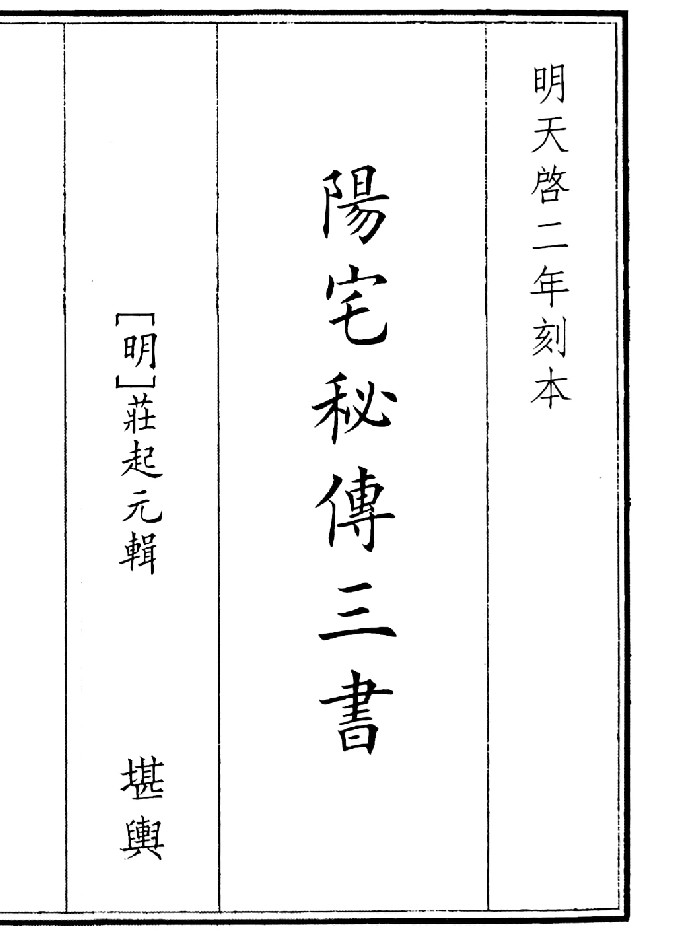 明天啓二年刻本
陽宅秘傳三書
［明］莊起元輯
堪輿